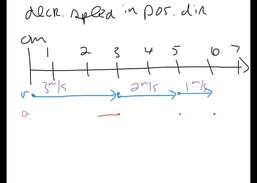 decr. speed in pos. dir
cm
1 2 3 4 5 6 7
v 3 m/s 2 m/s 1 m/s
a